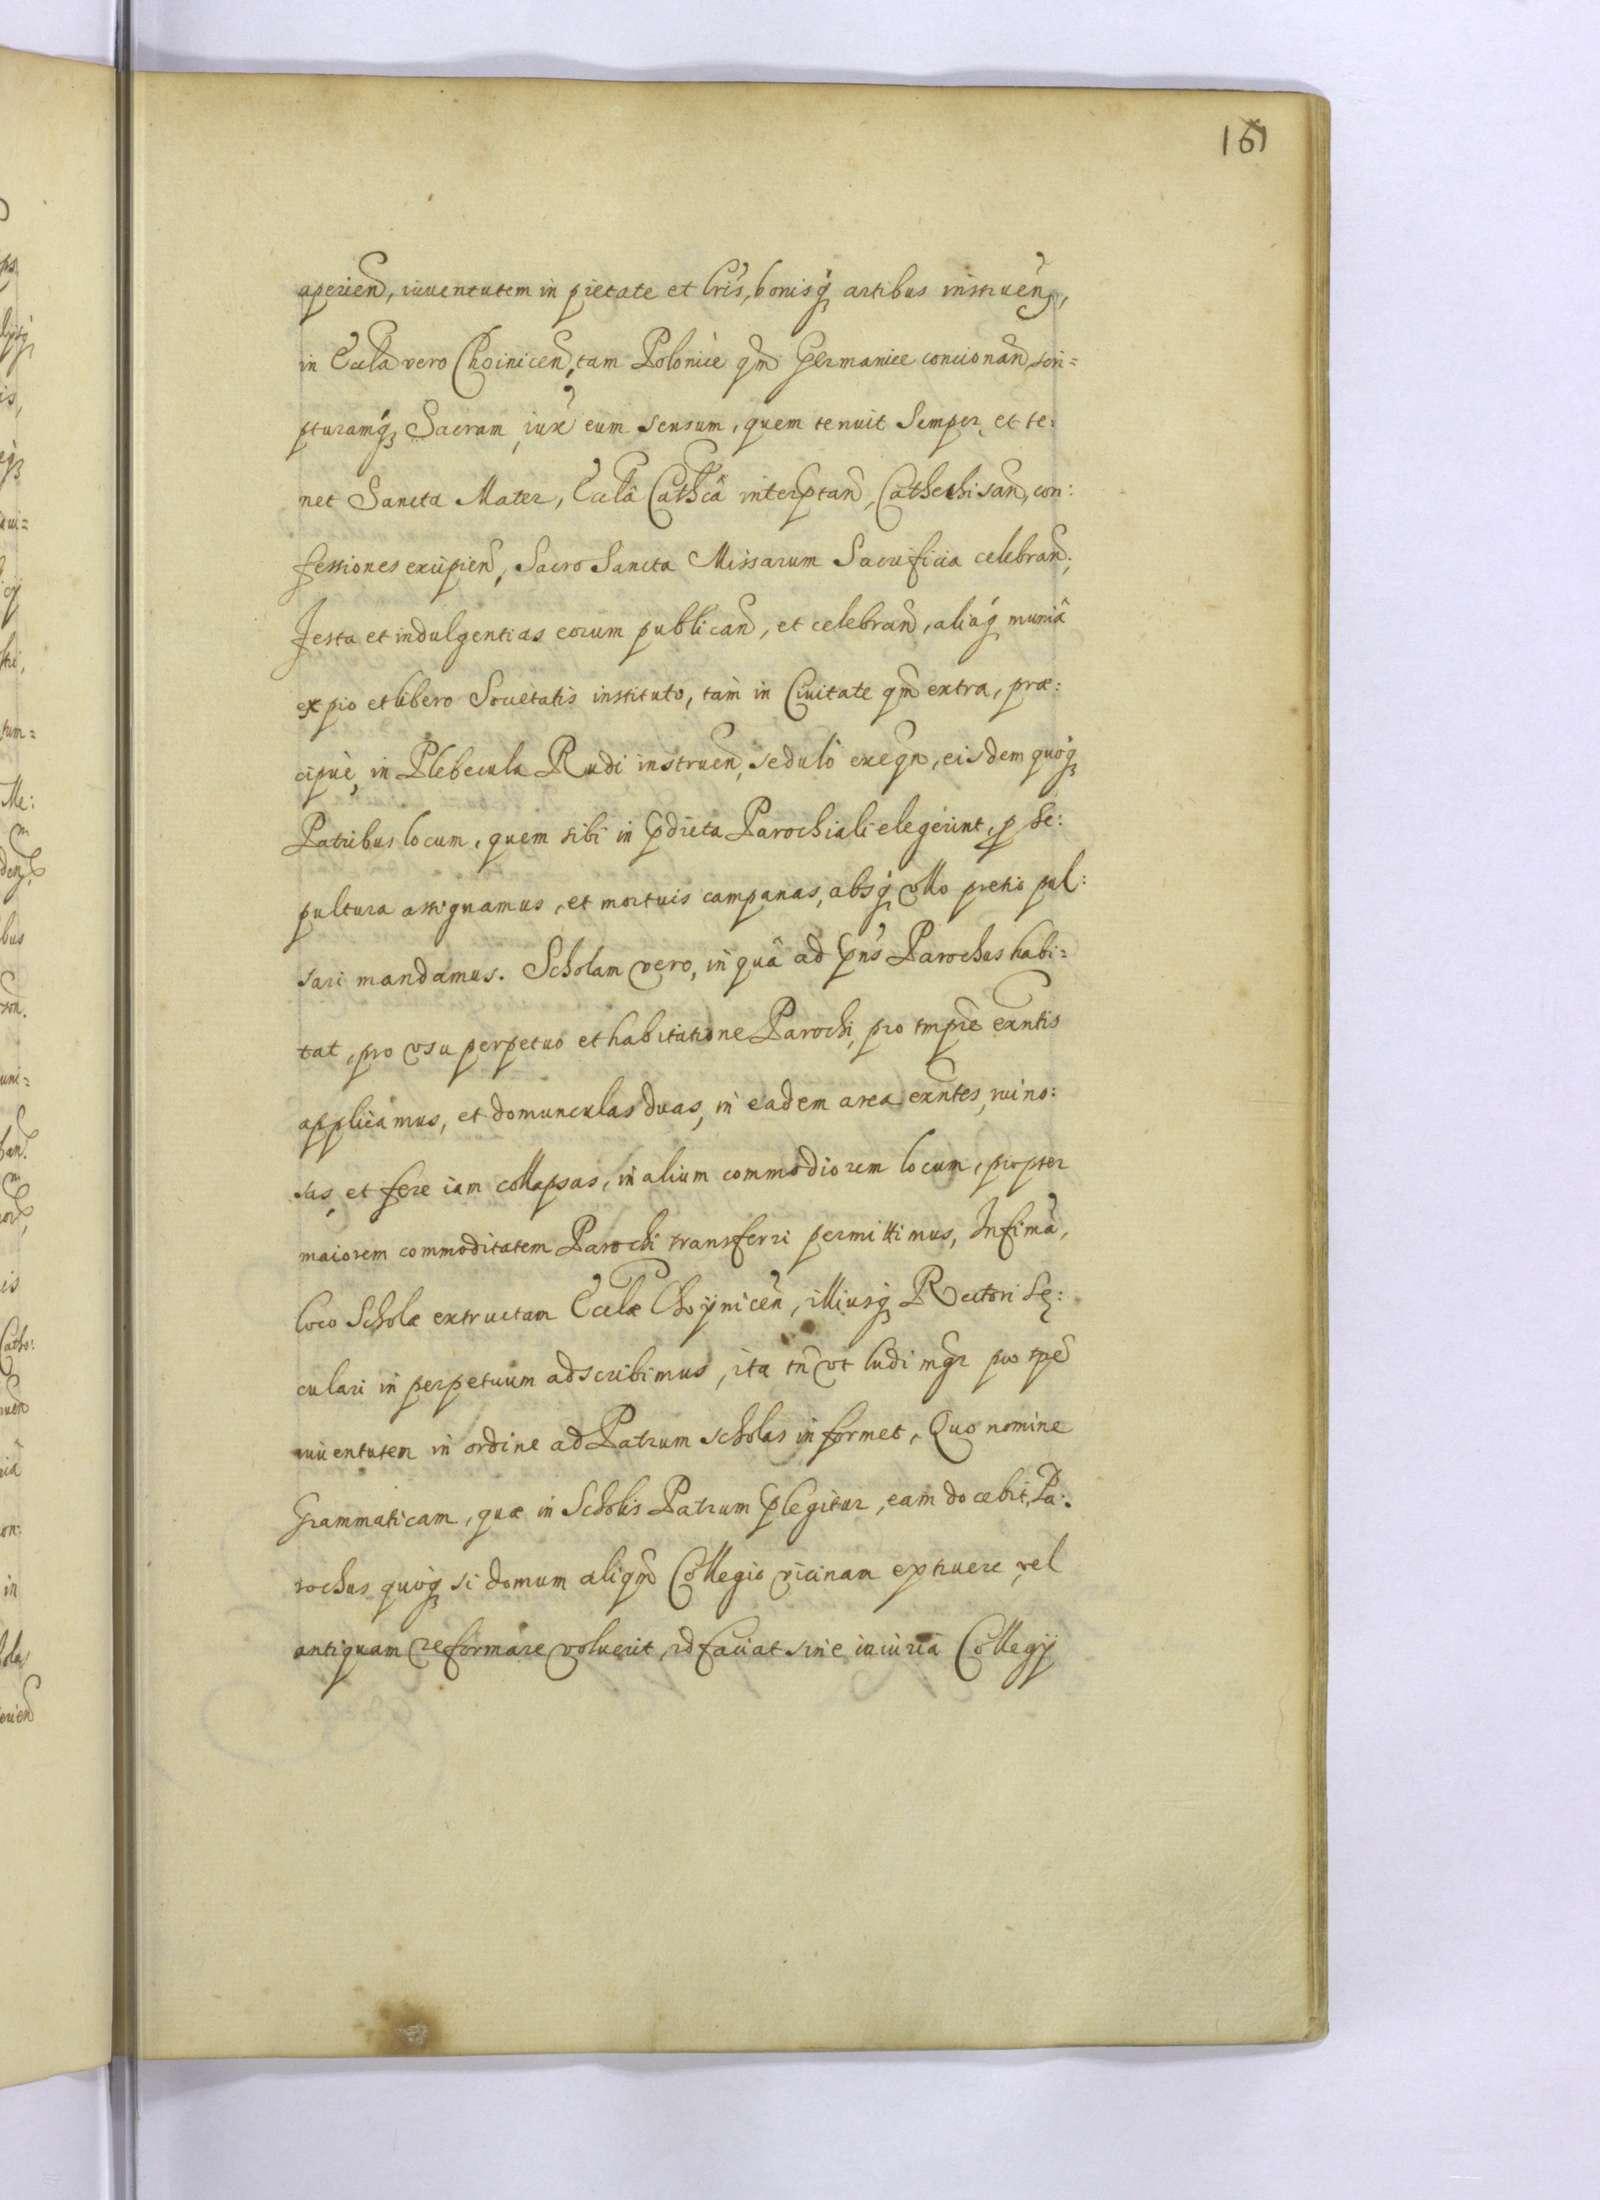 161
aperien̄, iuuentutem in pietate et lr̄is, bonisq́ꝫ artibus instruen̄,
in Eccl̄a vero Choinicen̄, tam Polonicè qm̄ Germanice concionan̄, scri=
pturamq́ꝫ Sacram iux̄ eum sensum, quem tenuit semper, et te:
net Sancta Mater, Eccl̄a Cathc̄a interp̄tan̄, Cathechisan̄, con:
fessiones excipien̄, Sacro Sancta Missarum Sacrificia celebran̄,
Festa et indulgentias eorum publican̄, et celebran̄, aliaq́ꝫ muniâ
ex pio et libero Societatis instituto, tàm in Ciuitate qm̄ extra, præ:
cipuè, in Plebecula Rudi instruen̄, sedulò exeqn̄, eisdem quoq́ꝫ
Patribus locum, quem sibi in p̄dicta Parochiali elegerint, p̱ se:
pultura assignamus, et mortuis campanas, absq́ꝫ vllo pretio pul:
sari mandamus. Scholam vero, in quâ ad p̄ns Parochus habi=
tat, pro vsu perpetuo et habitatione Parochi, pro tmp̄re exn̄tis
applicamus, et domunculas duas, in eadem area exn̄tes, ruino:
sas, et fere iam collapsas, in alium commodiorem locum, propter
maiorem commoditatem Parochi transferri permittimus, Infimā,
loco Scholæ extructam Eccl̄æ Choÿnicen̄, illiusq́ꝫ Rectori sę:
culari in perpetuum adscribimus, ita tn̄ vt ludi mḡr pro tp̄e
iuuentutem in ordine ad Patrum scholas informet, Quo nomine
Grammaticam, quæ in Scholis Patrum p̄legitur, eam docebit, Pa:
rochus quoq́ꝫ si domum aliqm̄ Collegio vicinam extruere, vel
antiquam reformare voluerit, id faciat sine iniuria Collegÿ